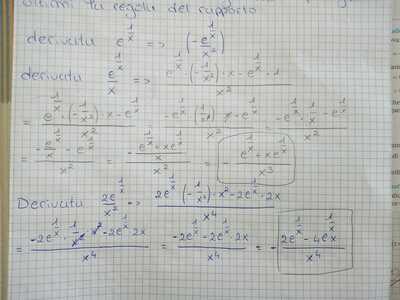 ultimi tu regola del rapporto
derivata e^{1/x} => (-e^{1/x}/x²)
derivata e^{1/x}/x => (e^{1/x}·(-1/x²)·x-e^{1/x}·1)/x²
= (e^{1/x}·(-1/x²)·x-e^{1/x})/x² = (-e^{1/x}·(1/x²)·x-e^{1/x})/x² = (-e^{1/x}·1/x-e^{1/x})/x²
= (-e^{1/x}/x-e^{1/x})/x² = (-(e^{1/x}+xe^{1/x})/x)/x² = -(e^{1/x}+xe^{1/x})/x³
Derivata 2e^{1/x}/x² => (2e^{1/x}·(-1/x²)·x²-2e^{1/x}·2x)/x⁴
= (-2e^{1/x}·1/x²·x²-2e^{1/x}·2x)/x⁴ = (-2e^{1/x}-2e^{1/x}·2x)/x⁴ = -(2e^{1/x}-4e^{1/x}x)/x⁴